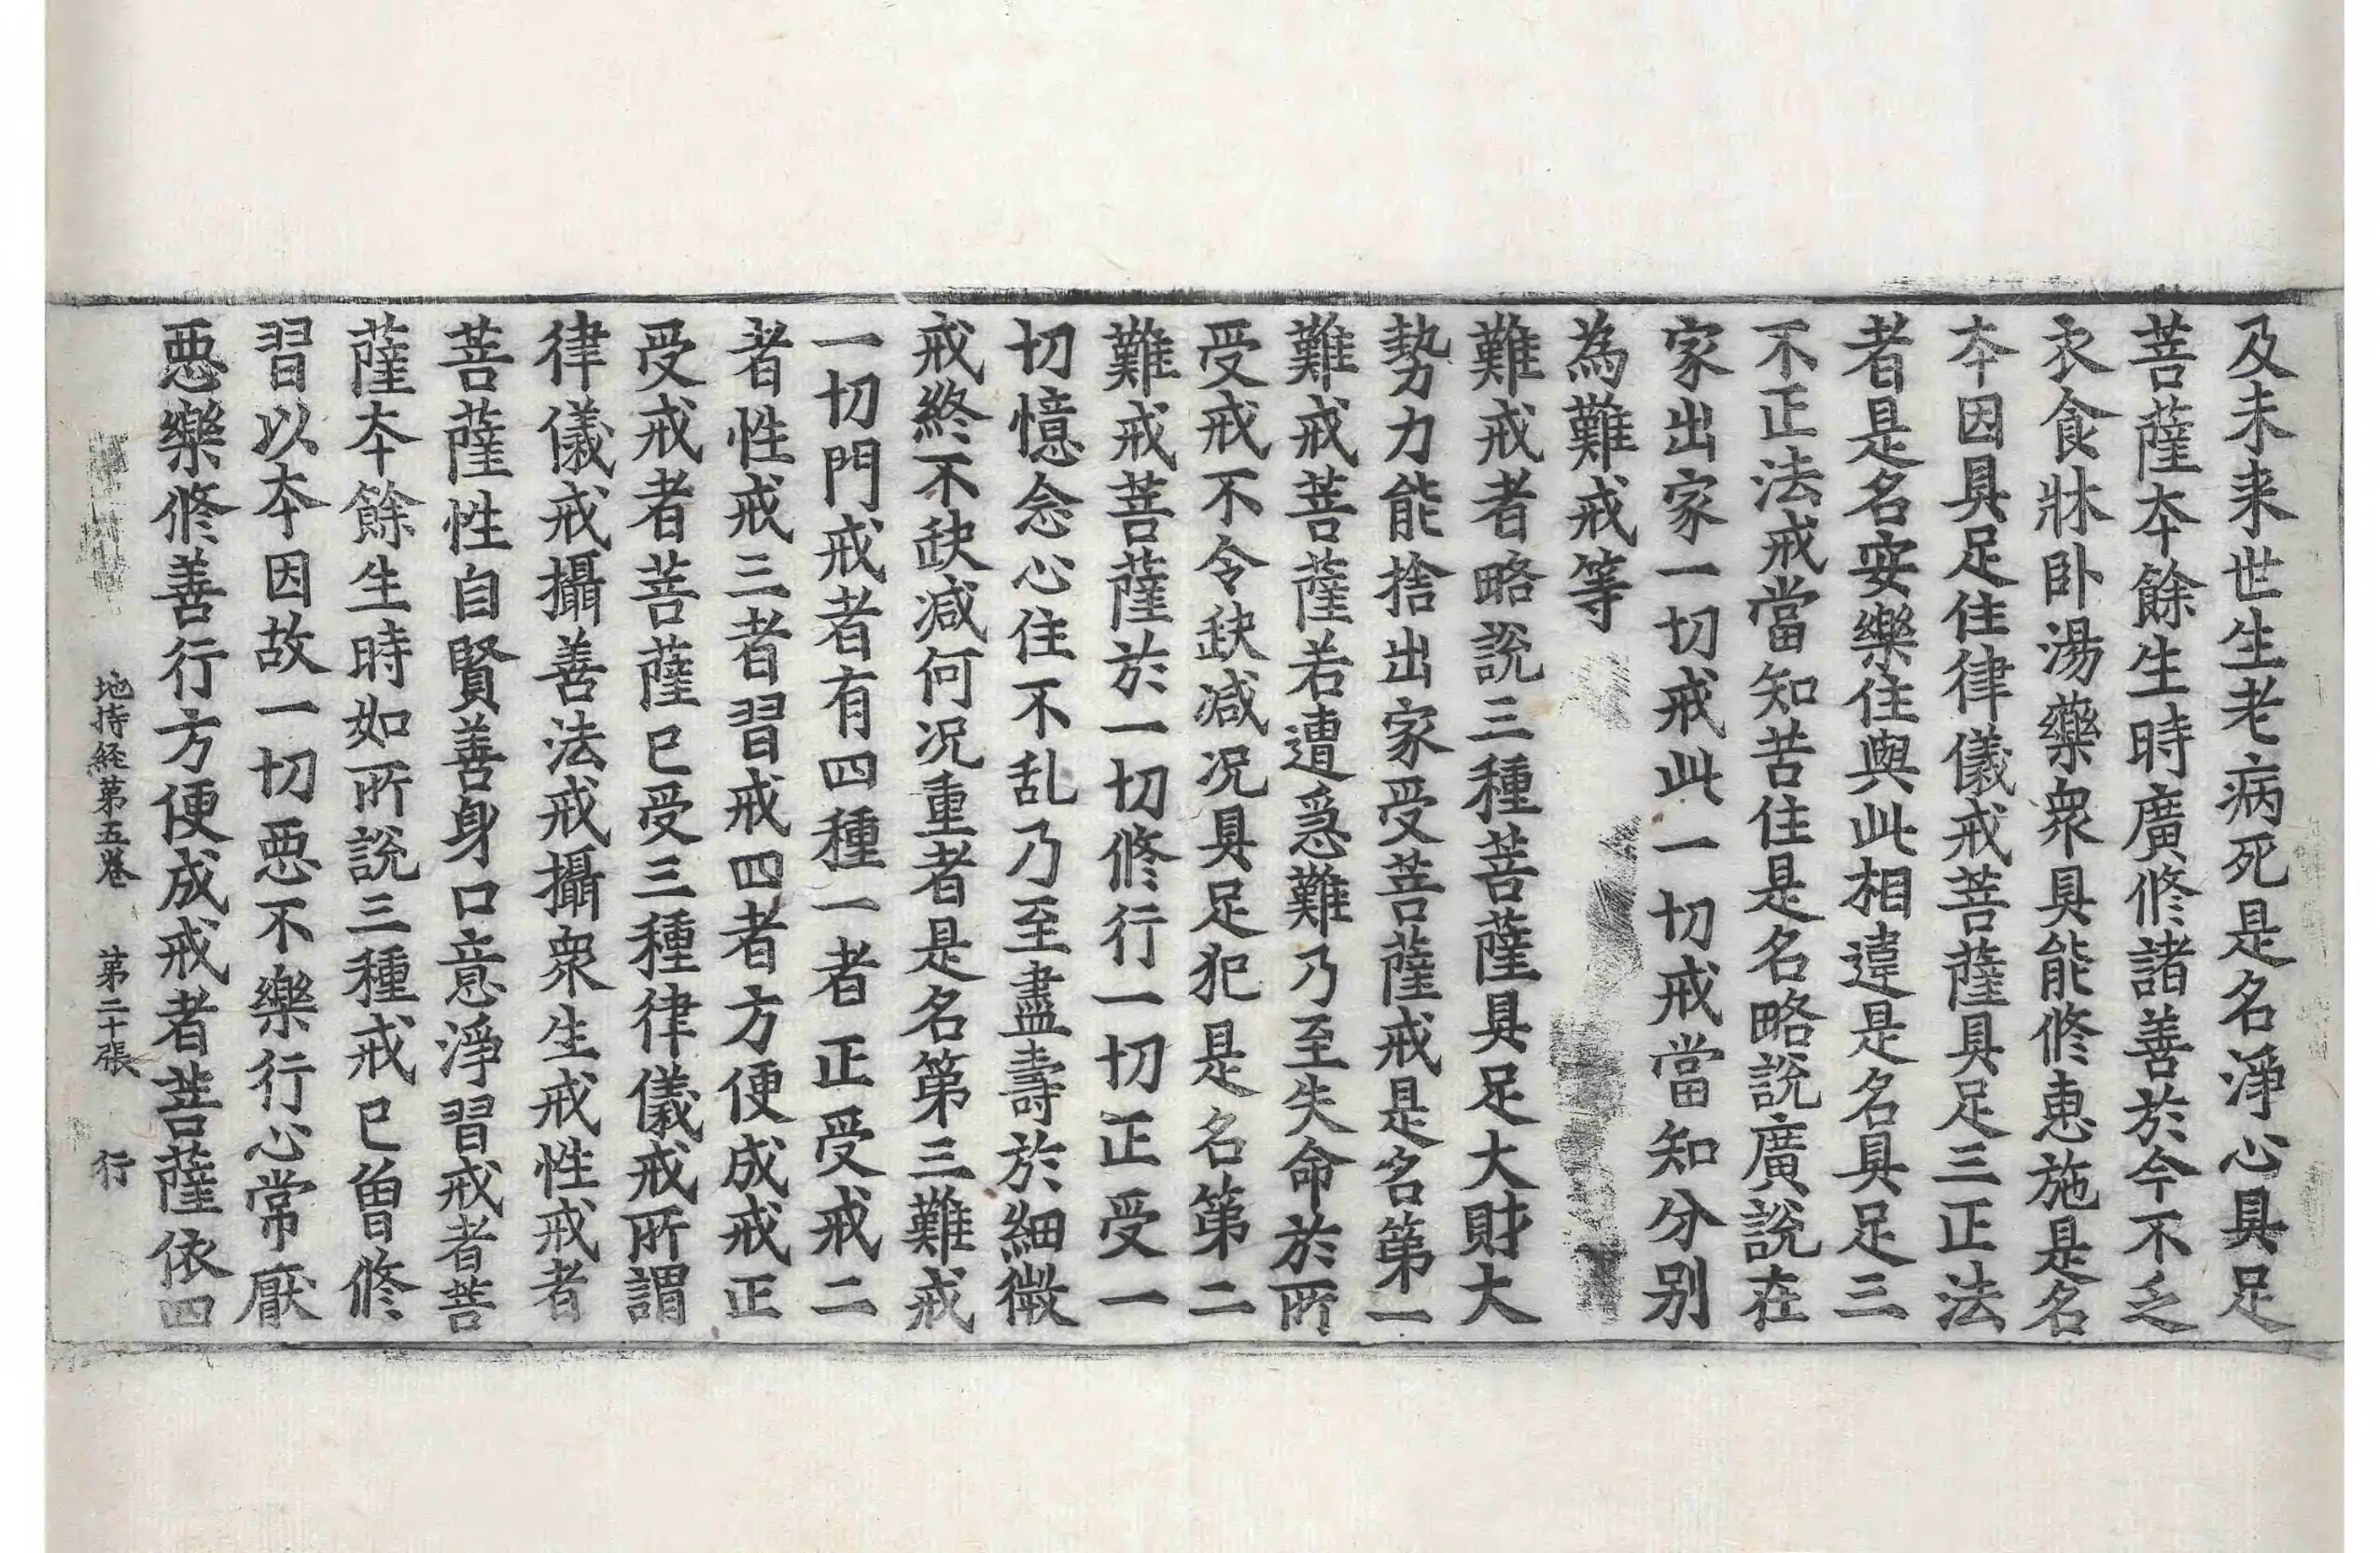 及未来世生老病死是名淨心具足
菩薩夲餘生時廣修諸善於今不乏
衣食牀卧湯藥衆具能修恵施是名
夲因具足住律儀戒菩薩具足三正法
者是名安樂住與此相違是名具足三
不正法戒當知苦住是名略說廣說在
家出家一切戒此一切戒當知分别
為難戒等
難戒者略說三種菩薩具足大財大
勢力能捨出家受菩薩戒是名第一
難戒菩薩若遭急難乃至失命於所
受戒不令缺减况具足犯是名第二
難戒菩薩於一切修行一切正受一
切憶念心住不乱乃至盡壽於細微
戒終不缺减何况重者是名第三難戒
一切門戒者有四種一者正受戒二
者性戒三者習戒四者方便成戒正
受戒者菩薩已受三種律儀戒所謂
律儀戒攝善法戒攝衆生戒性戒者
菩薩性自賢善身口意淨習戒者菩
薩夲餘生時如所說三種戒已曾修
習以夲因故一切悪不樂行心常厭
悪樂修善行方便成戒者菩薩依四
地持経第五卷 第二十張 行